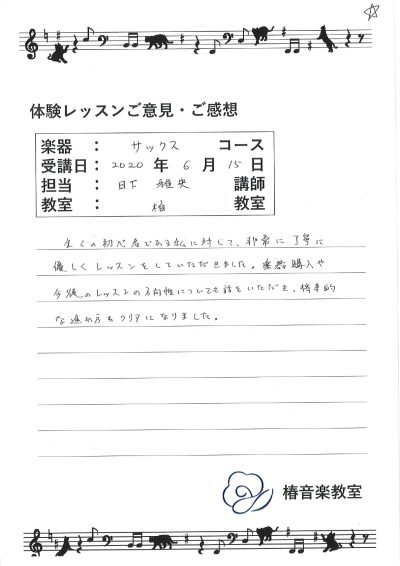 体験レッスンご意見・ご感想
楽器 : サックス コース
受講日 : 2020 年 6 月 15 日
担当 : 日下 雅央 講師
教室 : 柏 教室
全くの初心者である私に対して、非常に丁寧に
優しくレッスンをしていただきました。楽器購入や
今後のレッスンの方向性についても話をいただき、将来的
な進め方もクリアになりました。
椿音楽教室